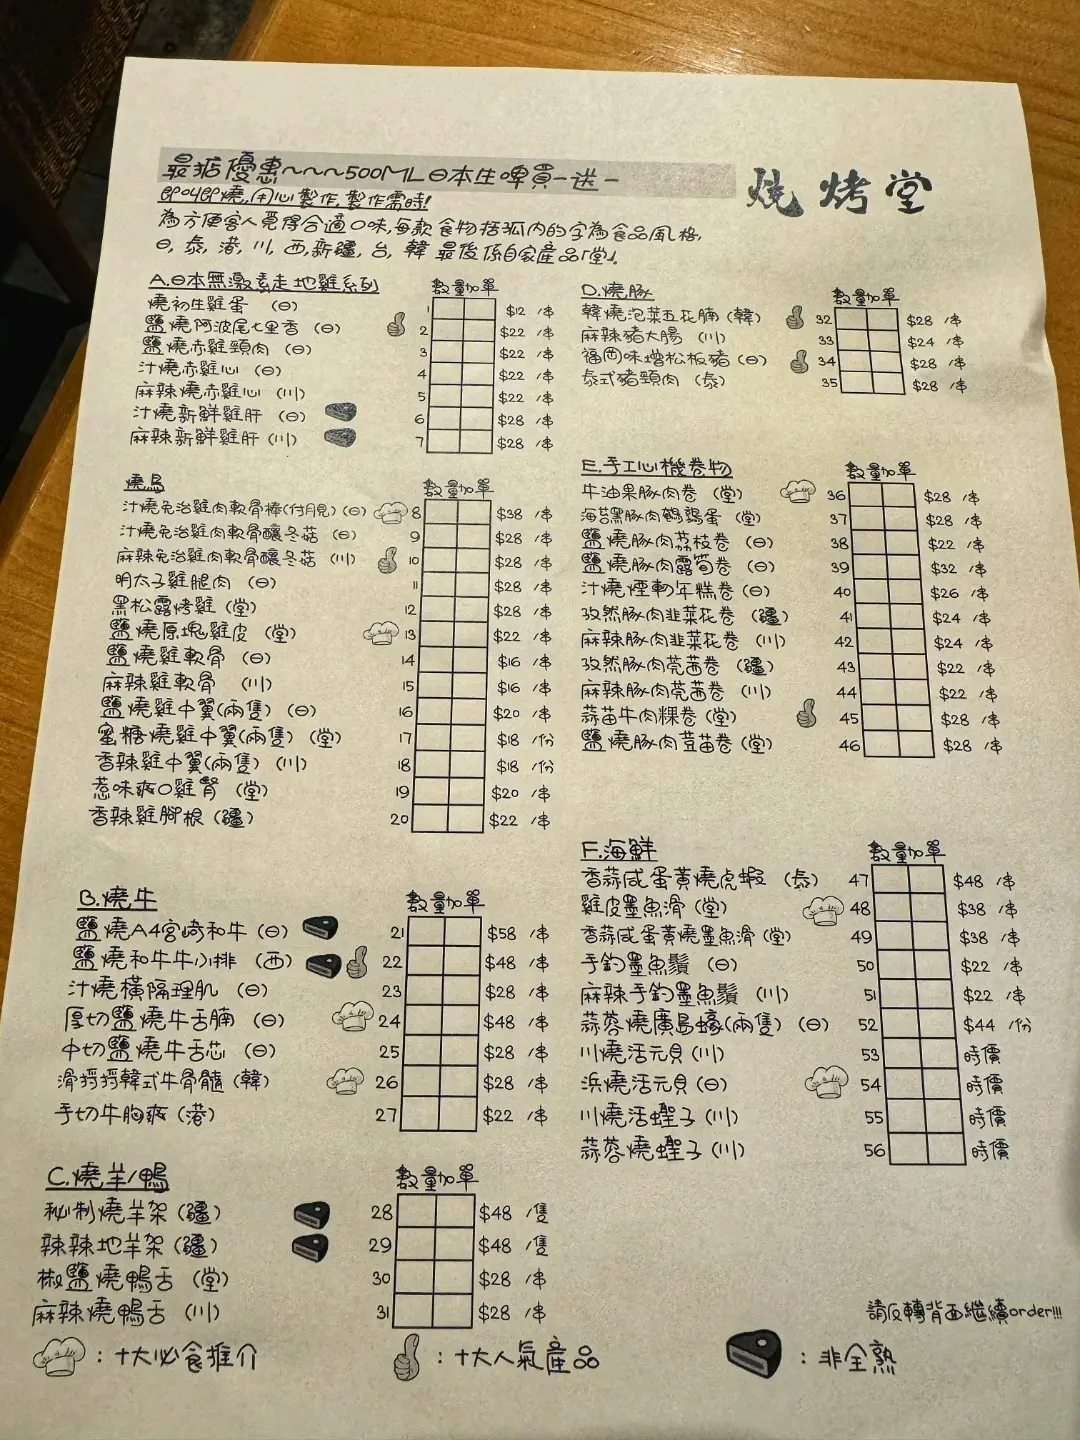 最掂優惠~~~500ML日本生啤買一送一
燒烤堂
即叫即燒,用心製作,製作需時!
為方便客人覓得合適口味,每款食物括弧內的字為食品風格,
日, 泰, 港, 川, 西, 新疆, 台, 韓 最後係自家產品「堂」。
A.日本無激素走地雞系列 數量 加單
燒初生雞蛋 (日) 1 $12 /串
鹽燒阿波尾七里香 (日) 2 $22 /串
鹽燒赤雞頸肉 (日) 3 $22 /串
汁燒赤雞心 (日) 4 $22 /串
麻辣燒赤雞心 (川) 5 $22 /串
汁燒新鮮雞肝 (日) 6 $28 /串
麻辣新鮮雞肝 (川) 7 $28 /串
燒鳥 數量 加單
汁燒免治雞肉軟骨棒(付月見) (日) 8 $38 /串
汁燒免治雞肉軟骨釀冬菇 (日) 9 $28 /串
麻辣免治雞肉軟骨釀冬菇 (川) 10 $28 /串
明太子雞腿肉 (日) 11 $28 /串
黑松露烤雞 (堂) 12 $28 /串
鹽燒原塊雞皮 (堂) 13 $22 /串
鹽燒雞軟骨 (日) 14 $16 /串
麻辣雞軟骨 (川) 15 $16 /串
鹽燒雞中翼(兩隻) (日) 16 $20 /串
蜜糖燒雞中翼(兩隻) (堂) 17 $18 /份
香辣雞中翼(兩隻) (川) 18 $18 /份
惹味爽口雞腎 (堂) 19 $20 /串
香辣雞腳根 (疆) 20 $22 /串
B.燒牛 數量 加單
鹽燒A4宮崎和牛 (日) 21 $58 /串
鹽燒和牛牛小排 (西) 22 $48 /串
汁燒橫隔理肌 (日) 23 $28 /串
厚切鹽燒牛舌腩 (日) 24 $48 /串
中切鹽燒牛舌芯 (日) 25 $28 /串
滑捋捋韓式牛骨髓 (韓) 26 $28 /串
手切牛胸爽 (港) 27 $22 /串
C.燒羊/鴨 數量 加單
秘制燒羊架 (疆) 28 $48 /隻
辣辣地羊架 (疆) 29 $48 /隻
椒鹽燒鴨舌 (堂) 30 $28 /串
麻辣燒鴨舌 (川) 31 $28 /串
D.燒豚 數量 加單
韓燒泡菜五花腩 (韓) 32 $28 /串
麻辣豬大腸 (川) 33 $24 /串
福岡味增松板豬 (日) 34 $28 /串
泰式豬頸肉 (泰) 35 $28 /串
E.手工心機卷物 數量 加單
牛油果豚肉卷 (堂) 36 $28 /串
海苔黑豚肉鵪鶉蛋 (堂) 37 $28 /串
鹽燒豚肉荔枝卷 (日) 38 $22 /串
鹽燒豚肉露筍卷 (日) 39 $32 /串
汁燒煙韌年糕卷 (日) 40 $26 /串
孜然豚肉韭菜花卷 (疆) 41 $24 /串
麻辣豚肉韭菜花卷 (川) 42 $24 /串
孜然豚肉莞茜卷 (疆) 43 $22 /串
麻辣豚肉莞茜卷 (川) 44 $22 /串
蒜苗牛肉粿卷 (堂) 45 $28 /串
鹽燒豚肉荳苗卷 (堂) 46 $28 /串
F.海鮮 數量 加單
香蒜咸蛋黃燒虎蝦 (泰) 47 $48 /串
雞皮墨魚滑 (堂) 48 $38 /串
香蒜咸蛋黃燒墨魚滑 (堂) 49 $38 /串
手釣墨魚鬚 (日) 50 $22 /串
麻辣手釣墨魚鬚 (川) 51 $22 /串
蒜蓉燒廣島蠔(兩隻) (日) 52 $44 /份
川燒活元貝 (川) 53 時價
浜燒活元貝 (日) 54 時價
川燒活蟶子 (川) 55 時價
蒜蓉燒蟶子 (川) 56 時價
請反轉背面繼續order!!!
:十大必食推介
:十大人氣產品
:非全熟